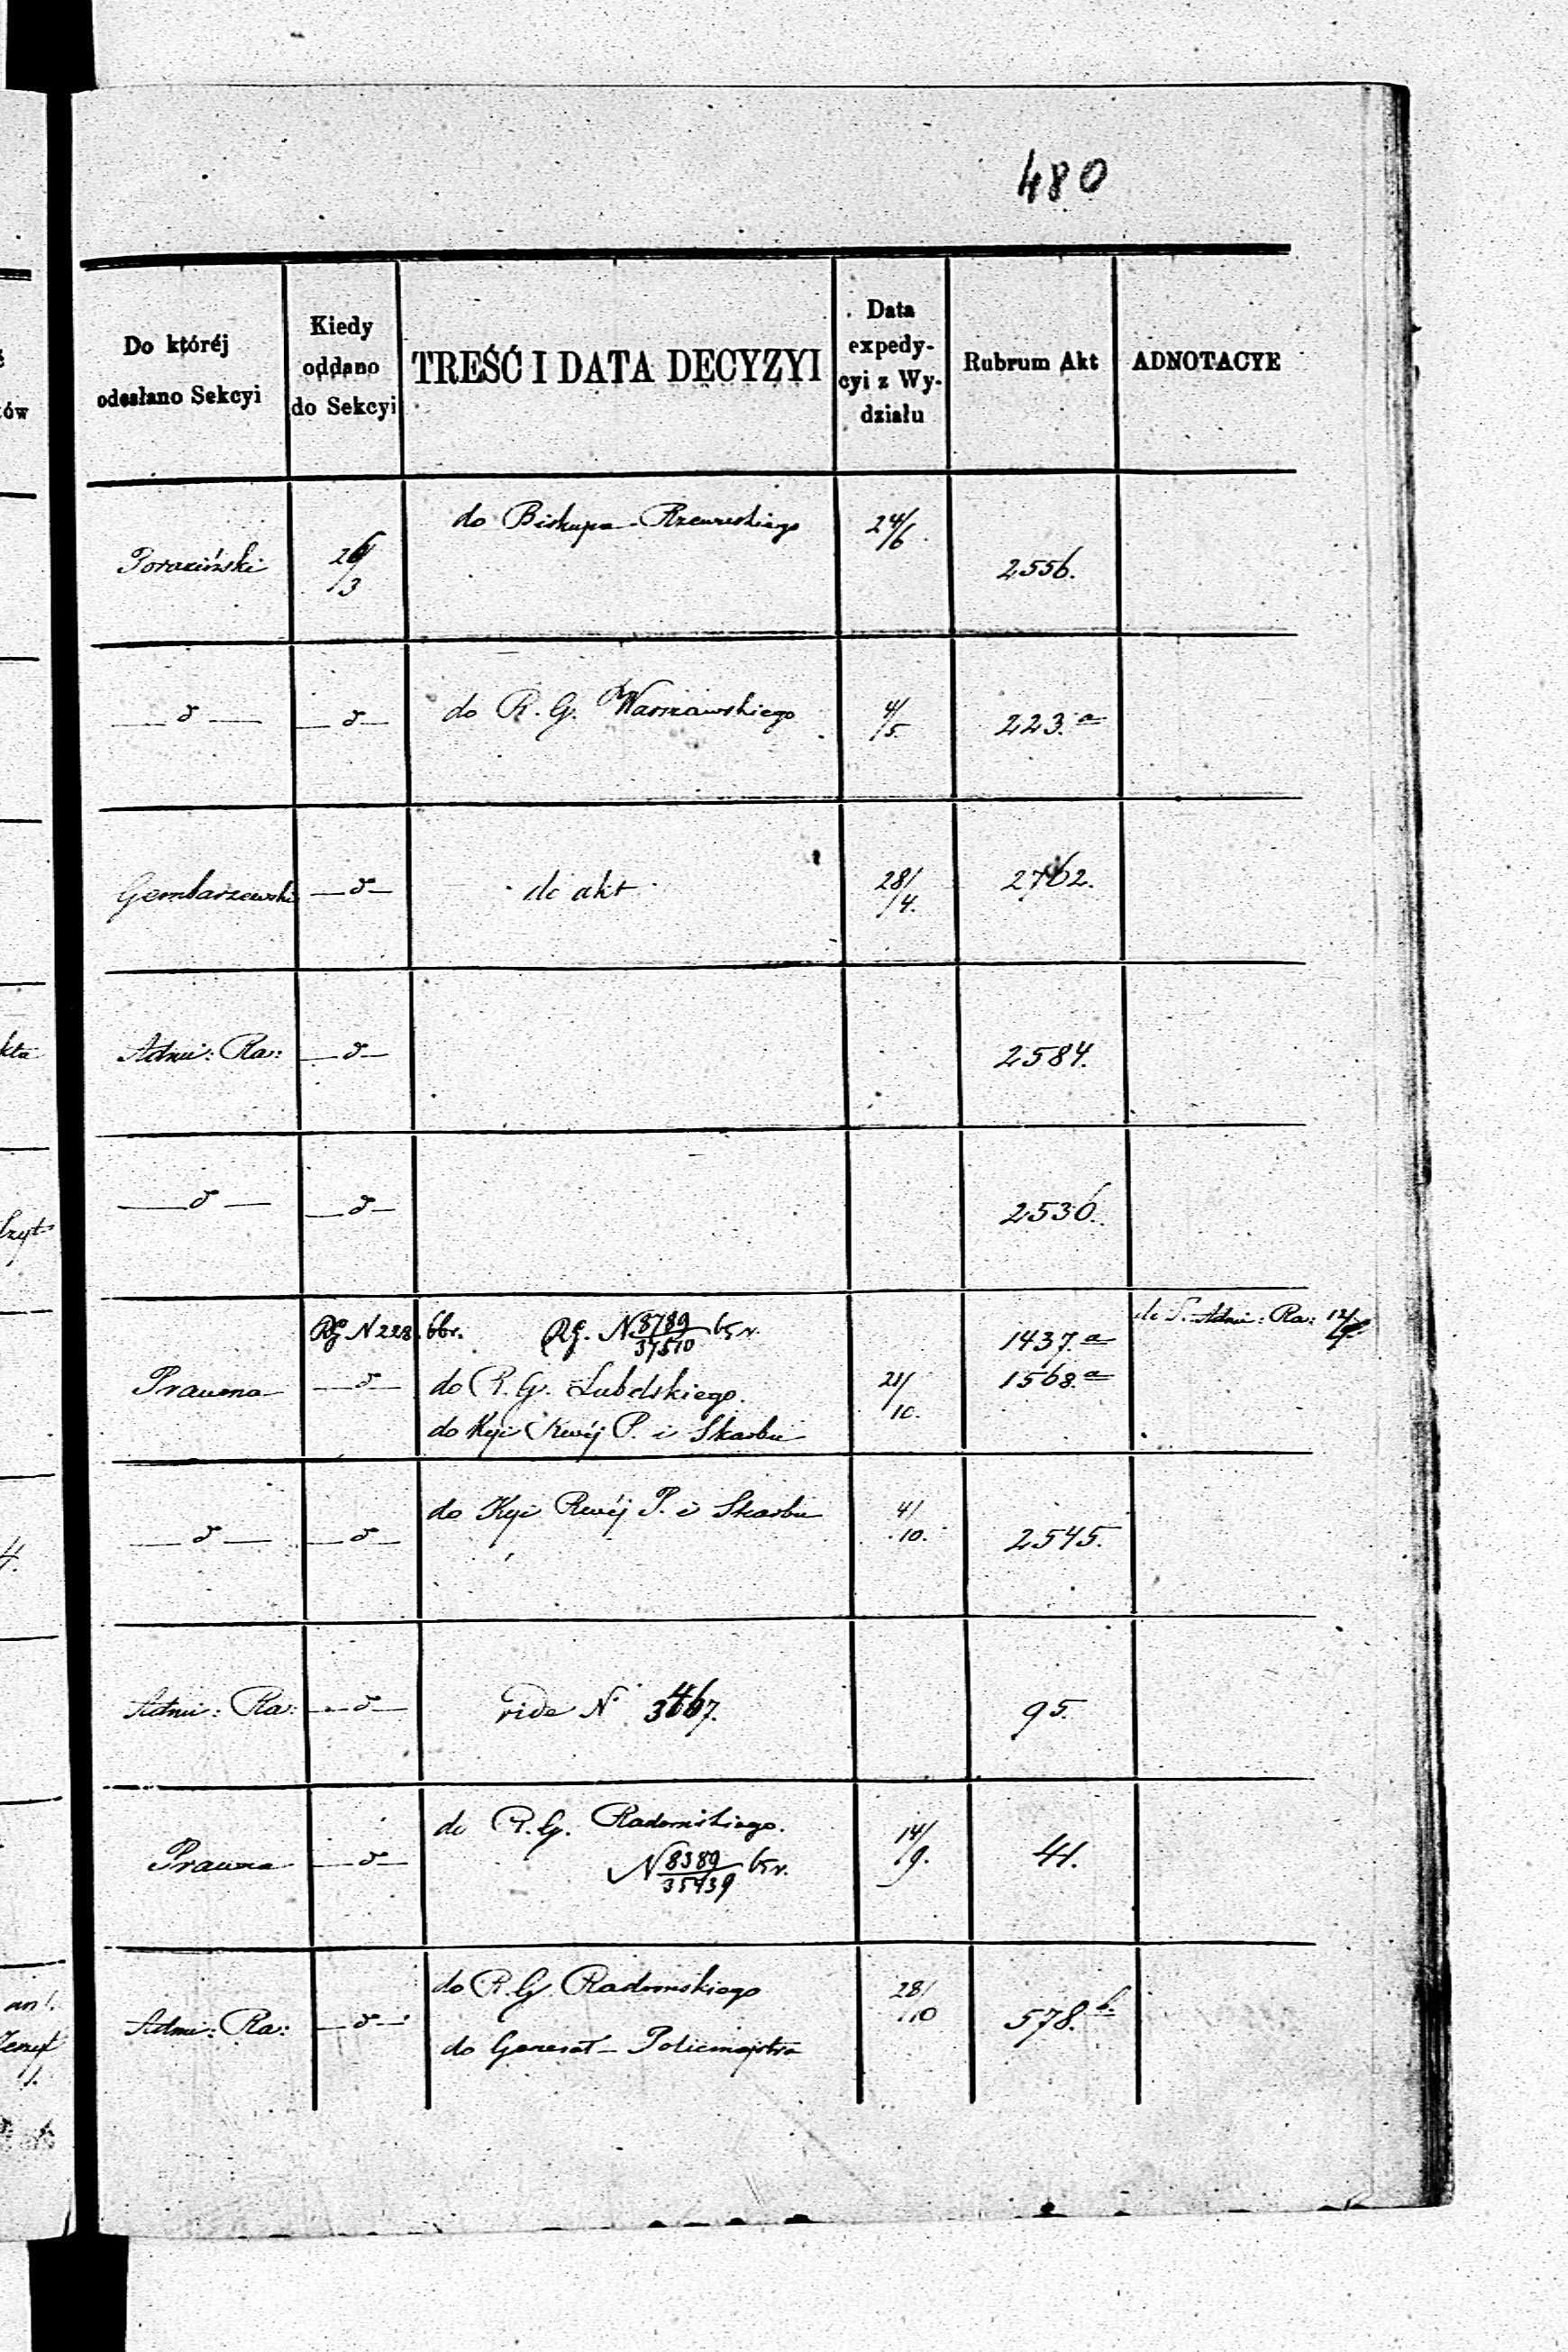 480
Do któréj odesłano Sekcyi
Kiedy oddano do Sekcyi
TREŚĆ I DATA DECYZYI
Data expedycyi z Wydziału
Rubrum Akt
ADNOTACYE
do Biskupa Rzewuskiego 24/6
Poraziński 26/3 2556.
— d — — d — do R. G. Warszawskiego 4/5 223.a
Gembarzewski — d — do akt 28/4. 2762.
Admi: Ra: — d — 2584.
— d — — d — 2536.
RG N 228 bbr. RG. N 8789/37510 br. 1437.a do S. Admi: Ra: 12/
Prawna — d — do R. G. Lubelskiego. 21/10. 1568.a
do Kyi Rwéj P. i Skarbu
do Kyi Rwéj P. i Skarbu 4/10.
— d — — d — 2545.
Admi: Ra: — d — vide N 3467. 95.
do R. G. Radomskiego. 14/9.
Prawna — d — N 8389/35439 br. 41.
do R. G. Radomskiego 28/10
Admi: Ra: — d — 578.b
do Generał-Policmajstra